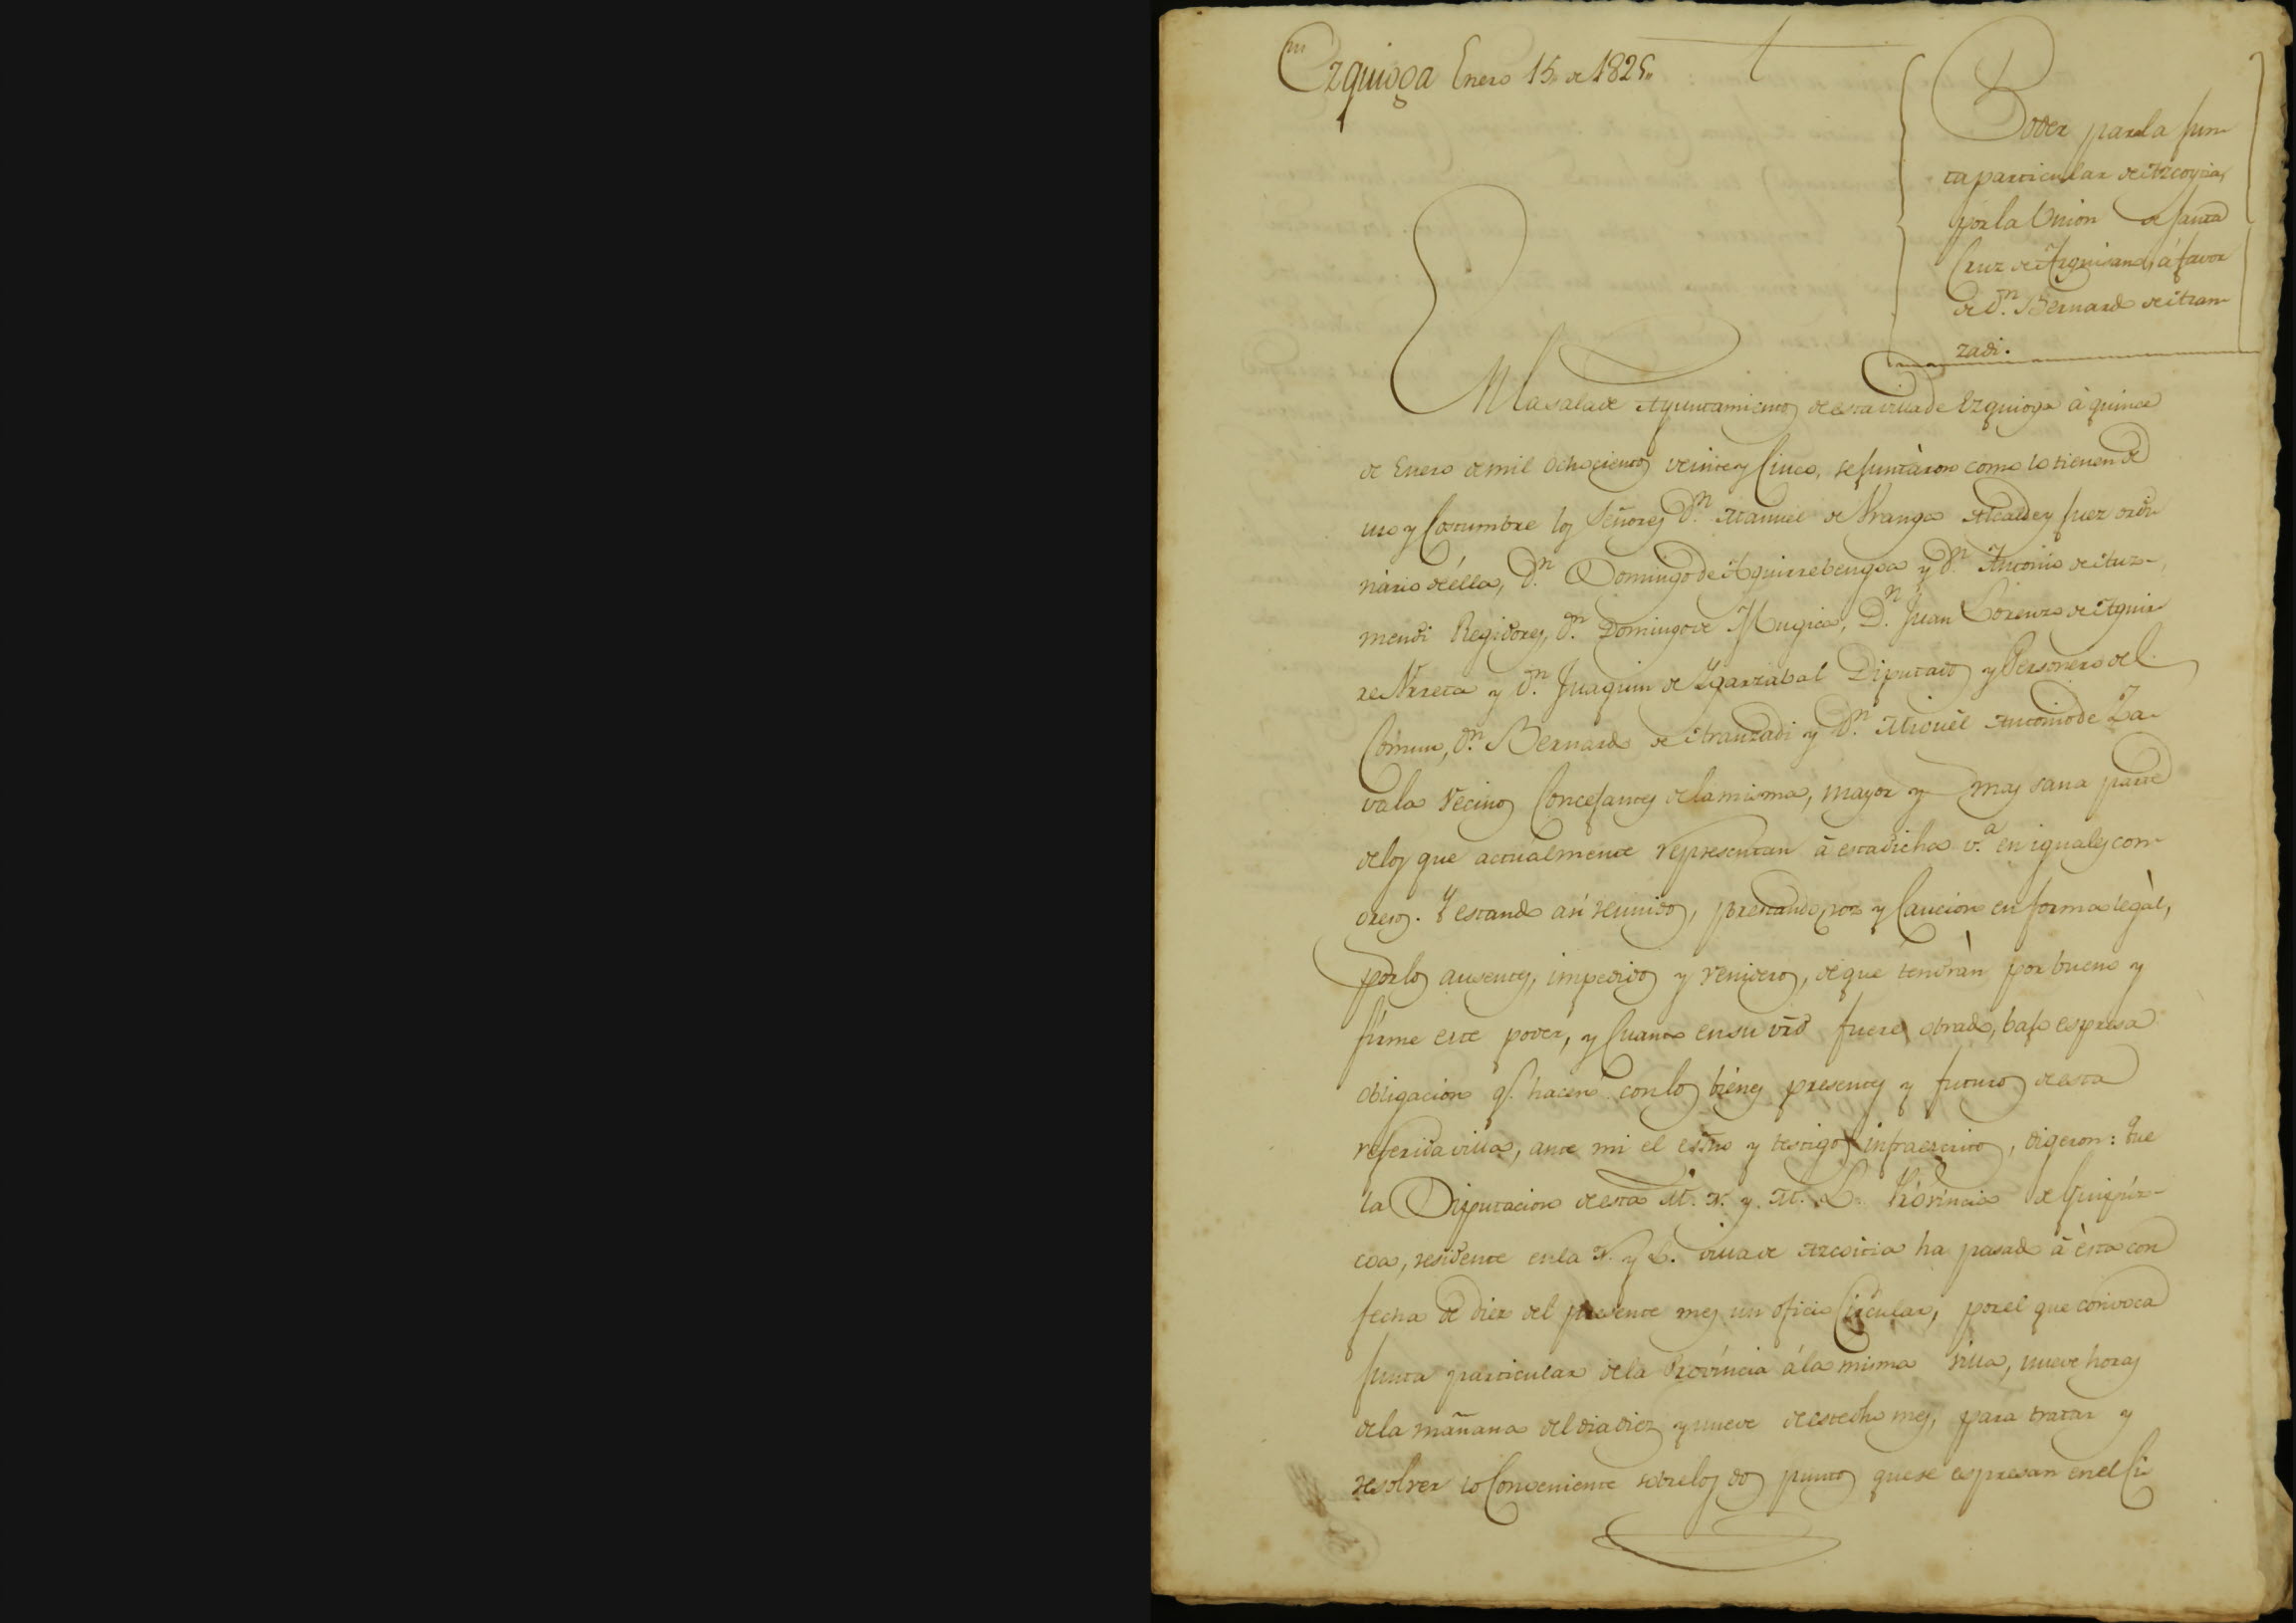 En Ezquioga Enero 15,, de 1825,,
Poder para la Jun-
ta particular de Azcoytia,
por la Union de Santa
Cruz de Arguisano, á favor
de Dn. Bernardo de Aran-
zadi.
En la sala de Ayuntamiento de esta villa de Ezquioga à quince
de Enero de mil ochocientos veinte y Cinco, se juntàron como lo tienen de
uso y Costumbre los Señores Dn. Manuel de Aranga Alcalde y Juez ordi-
nàrio de élla, Dn. Domingo de Aguirrebengoa y Dn. Antonio de Auz-
mendi Regidores, Dn. Domingo de Mugica, Dn. Juan Lorenzo de Aguir-
re Urreta y Dn. Juaquin de Ygarzabal Diputados y Personero del
Comun, Dn. Bernardo de Aranzadi y Dn. Miguèl Antonio de Za-
vala Vecinos Concejantes de la misma, mayor y mas sana parte
de los que actualmente representan à esta dicha v.a en iguales con-
gresos. Y estando asi reunidos, prestando voz y Caucion en forma legàl,
por los ausentes, impedidos y venideros, de que tendràn por bueno y
firme este poder, y Cuanto en su vrd fuere obrado, bajo espresa
obligacion q. hacen con los bienes presentes y futuros de esta
referida villa, ante mi el essno y testigos infraescritos, digeron: Que
la Diputacion de esta M. N. y M. L. Província de Guipúz-
coa, residente en la N. y L. villa de Azcoitia ha pasado à èsta con
fecha de diez del presente mes un oficio Circular, por el que convoca
Junta particular de la Província á la misma Villa, nueve horas
de la mañana del dia diez y nueve de este dho mes, para tratar y
resolver lo Conveniente sobre los dos puntos que se espresan en el Ci